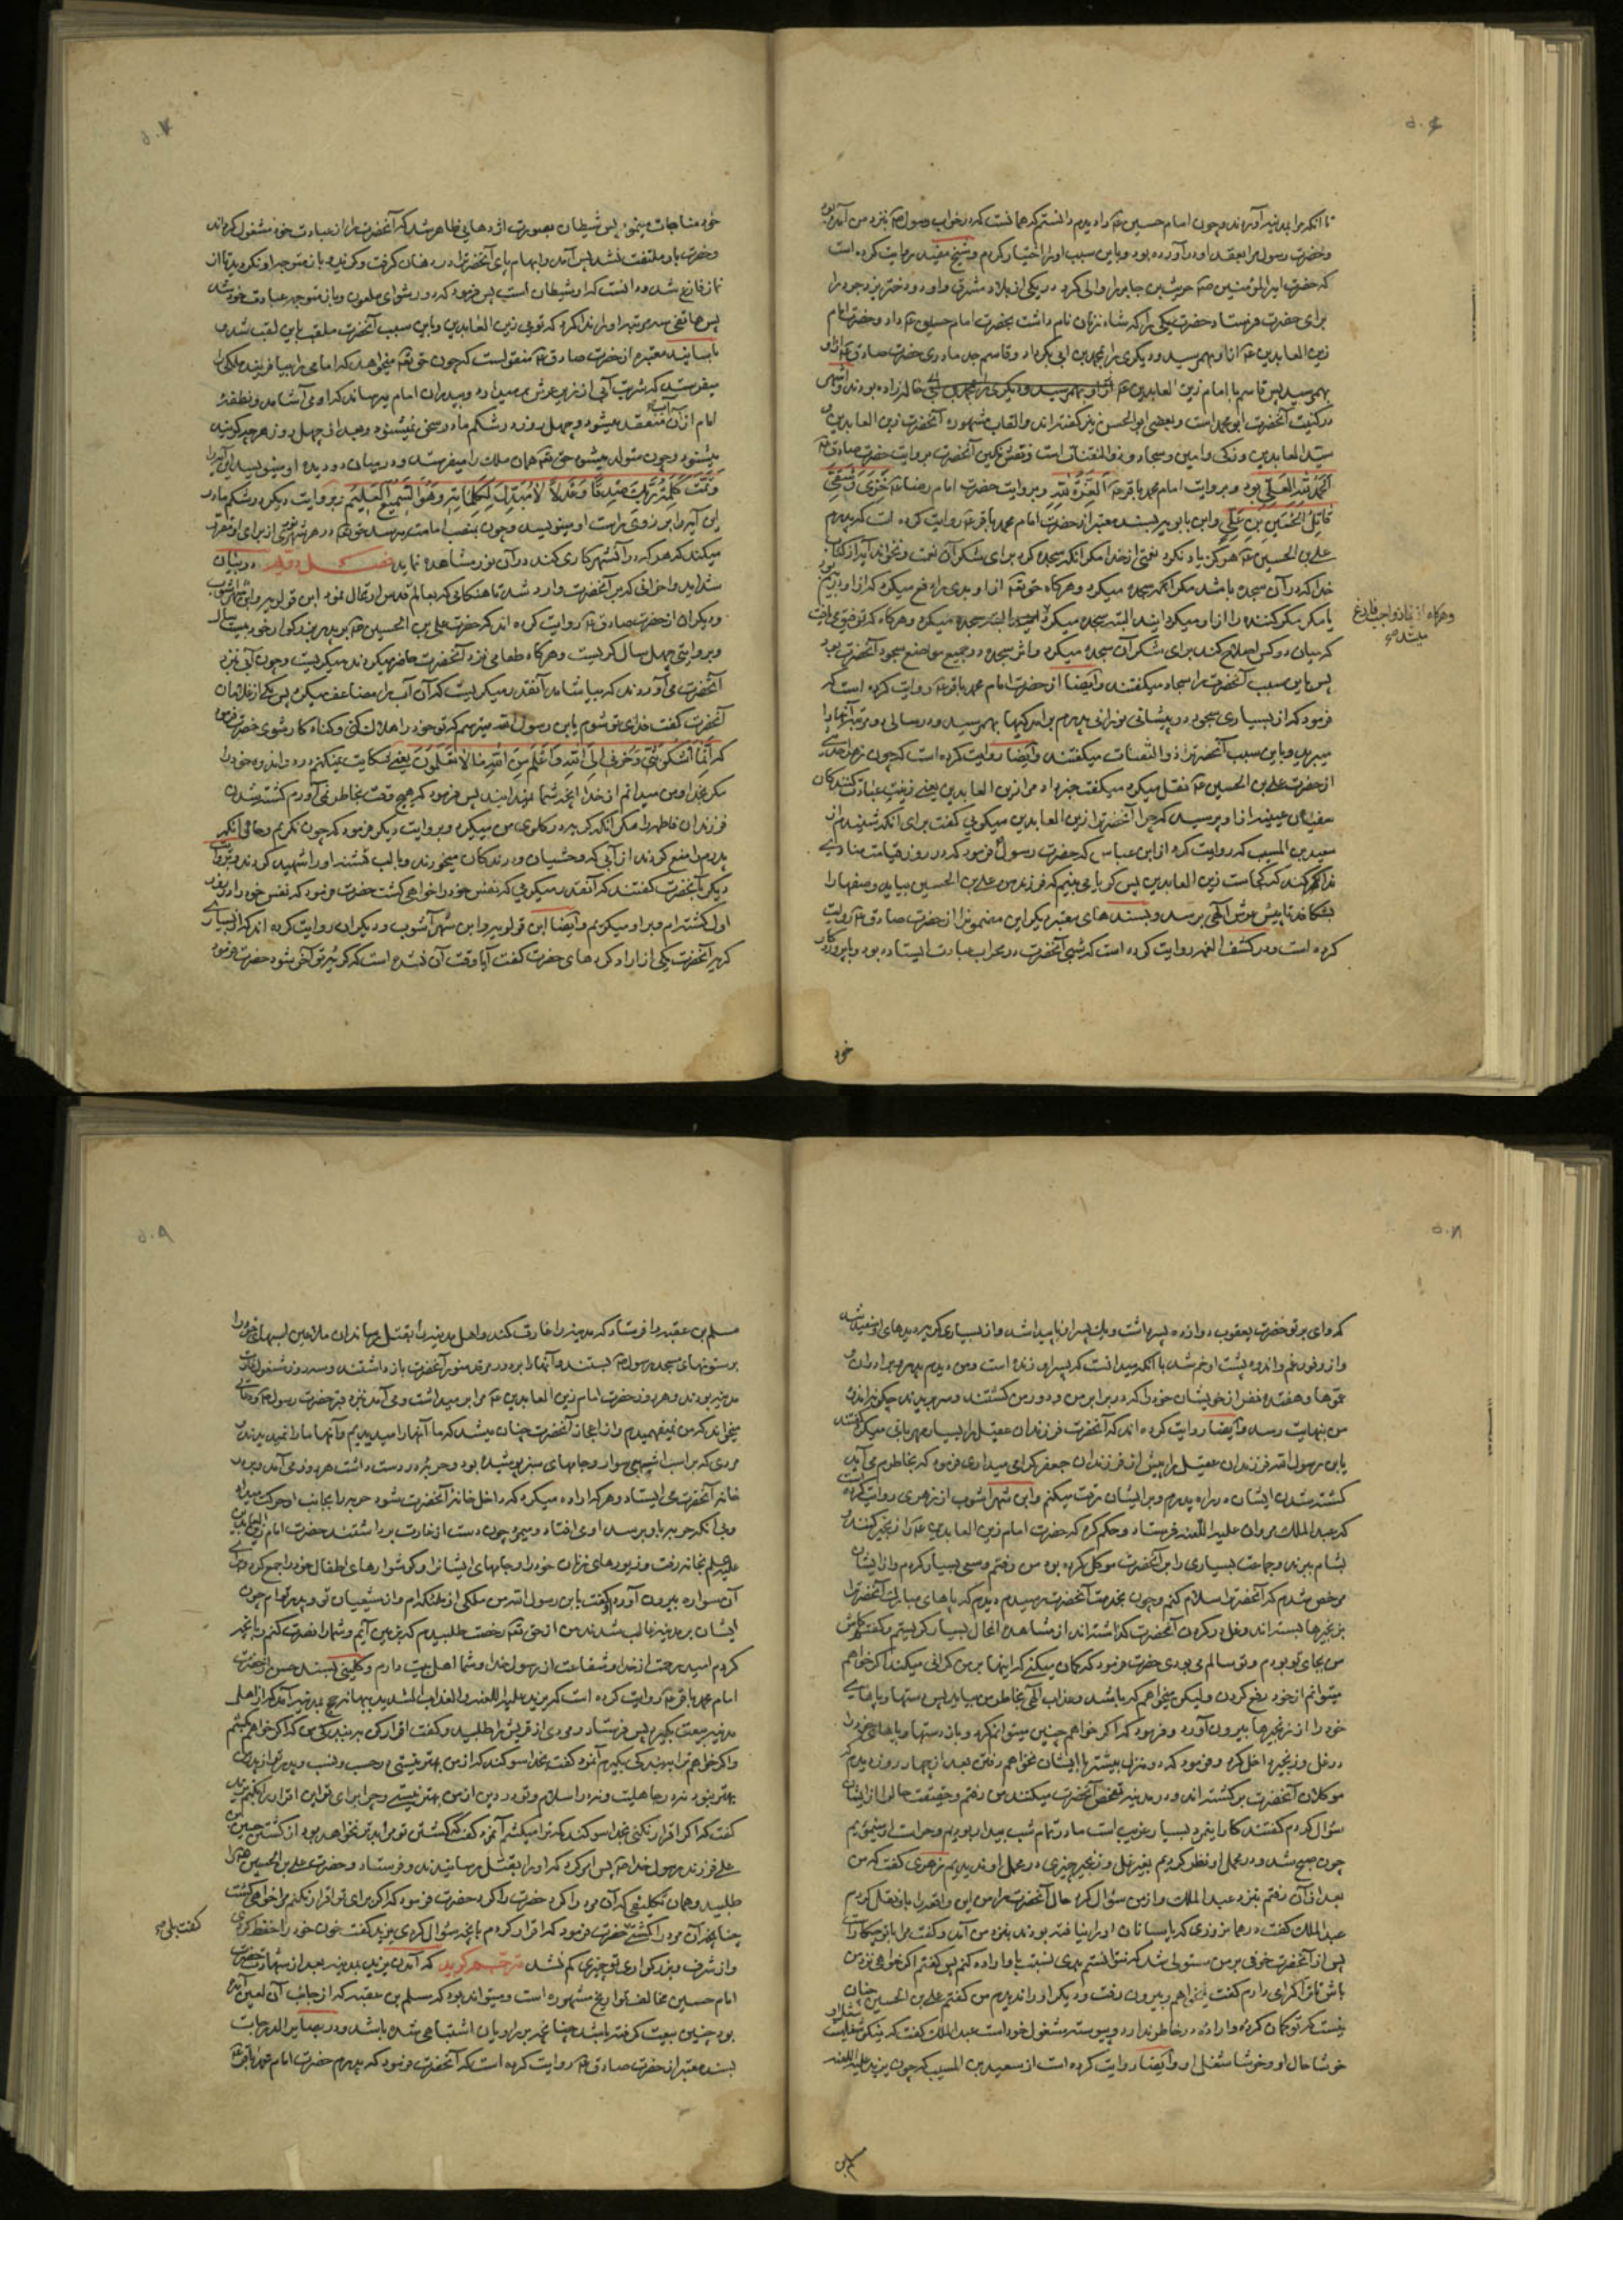 تا انکه مرا بمدینه آوردند و چون امام حسین را دیدم دانستم که همانست که در خواب با رسول نزد من آمده بود
و حضرت رسول مرا بعقد او درآورده بود و باین سبب او را اختیار کردم و شیخ مفید روایت کرده است
که حضرت امیر المؤمنین حریث بن جابر را والی کرد در یکی از بلاد مشرق و او دو دختر یزدجرد را
برای حضرت فرستاد حضرت یکی را که شاه زنان نام داشت بحضرت امام حسین داد و حضرت امام
زین العابدین از او بهمرسید و دیگری را بمحمد بن ابی بکر داد و قاسم جد مادری حضرت صادق از او
بهمرسید پس قاسم با امام زین العابدین خاله زاده بودند و اشهر
در کنیت آنحضرت ابو محمد است و بعضی ابو الحسن نیز گفته اند و القاب مشهوره آنحضرت زین العابدین و
سید العابدین و زکی و امین و سجاد و ذو الثفنات است و نقش نگین آنحضرت بروایت حضرت صادق
الحمد لله العلی بود و بروایت امام محمد باقر العزة لله و بروایت حضرت امام رضا خزی و شقی
قاتل الحسین بن علی و ابن بابویه بسند معتبر از حضرت امام محمد باقر روایت کرده است که پدرم
علی بن الحسین هرگز یاد نکرد نعمتی از خدا مگر انکه سجده کرد برای شکر آن نعمت و نخواند آیه از کتاب
خدا که در آن سجده باشد مگر انکه سجده میکرد و هرگاه حق تعالی از او بدی را دفع میکرد که از او در بیم بود
یا مکر مکر کننده را از او میگردانید البته سجده میکرد و هرگاه که توفیق می یافت
وهرگاه از نماز واجب فارغ
میشد
که میان دو کس اصلاح کند برای شکر آن سجده میکرد و اثر سجده در جمیع مواضع سجود آنحضرت بود
پس باین سبب آنحضرت را سجاد میگفتند و ایضا از حضرت امام محمد باقر روایت کرده است که
فرمود که از بسیاری سجود در پیشانی نورانی پدرم برآمدگیها بهمرسید و در سالی دو مرتبه آنها را
میبرید و باین سبب آنحضرت را ذو الثفنات میگفتند و ایضا روایت کرده است که چون زهری حدیث
از حضرت علی بن الحسین نقل میکرد میگفت خبر داد مرا زین العابدین یعنی زینت عبادت کنندگان
سفیان بن عیینه از او پرسید که چرا آنحضرت را زین العابدین میگویی گفت برای انکه شنیدم از
سعید بن المسیب که روایت کرد از ابن عباس که حضرت رسول فرمود که در روز قیامت منادی
ندا کند که کجاست زین العابدین پس گویا می بینم که فرزندم علی بن الحسین بیاید و صفها را
بشکافد تا پیش عرش الهی برسد و بسندهای معتبر دیگر این مضمون را از حضرت صادق روایت
کرده است و در کشف الغمه روایت کرده است که شبی آنحضرت در محراب عبادت ایستاده بود و با پروردگار
خود
خود مناجات مینمود پس شیطان بصورت اژدهایی ظاهر شد که آنحضرت را از عبادت خود مشغول گرداند
و حضرت باو ملتفت نشد پس آمد و ابهام پای آنحضرت را در دهان گرفت و گزید و باز متوجه او نگردید تا از
نماز فارغ شد و دانست که او شیطان است پس فرمود که دور شو ای ملعون و باز متوجه عبادت خود شد
پس هاتفی سه مرتبه او را ندا کرد که تویی زین العابدین و باین سبب آنحضرت ملقب باین لقب شد و
باسانید معتبره از حضرت صادق منقول است که چون حق تعالی میخواهد که امامی را بیافریند ملکی را
میفرستد که شربت آبی از زیر عرش بر میدارد و بپدر آن امام میرساند که او می آشامد و نطفه
امام از آن آب منعقد میشود و چهل روز در شکم مادر سخن نمیشنود و بعد از چهل روز هر چه گویند
میشنود و چون متولد میشود حق تعالی همان ملک را میفرستد و در میان دو دیده او مینویسد این آیه را
و تمت کلمة ربک صدقا و عدلا لا مبدل لکلماته و هو السمیع العلیم و بروایت دیگر در شکم مادر
این آیه را بر بازوی راست او مینویسد و چون بمنصب امامت میرسد حق تعالی در هر شهری نوری از برای او مقرر
میکند که هر که در آن شهر کاری کند در آن نور مشاهده نماید فصل دویم در بیان
شداید و احزانی که بر آنحضرت وارد شد تا هنگامی که بعالم قدس ارتحال نمود ابن قولویه و ابن شهر آشوب
و دیگران از حضرت صادق روایت کرده اند که حضرت علی بن الحسین بر پدر بزرگوار خود بیست سال
و بروایتی چهل سال گریست و هرگاه طعامی نزد آنحضرت حاضر میکردند میگریست و چون آبی نزد
آنحضرت می آوردند که بیاشامد آنقدر میگریست که آن آب را مضاعف میکرد پس یکی از غلامان
آنحضرت گفت فدای تو شوم یابن رسول الله میترسم که تو خود را هلاک کنی و گناه کار شوی حضرت فرمود
که انما اشکو بثی و حزنی الی الله و اعلم من الله ما لا تعلمون یعنی شکایت نمیکنم درد و اندوه خود را
مگر بخدا و من میدانم از خدا انچه شما نمیدانید پس فرمود که هیچ وقت بخاطر نمی آورم کشته شدن
فرزندان فاطمه را مگر آنکه گریه در گلوی من میگیرد و بروایت دیگر فرمود که چون نگریم و حال آنکه
پدرم را منع کردند از آبی که وحشیان و درندگان میخوردند و با لب تشنه او را شهید کردند و بروایت
دیگر بآنحضرت گفتند که آنقدر میگریی که نفس خود را خواهی کشت حضرت فرمود که نفس خود را در روز
اول کشته ام و بر او میگریم و ایضا ابن قولویه و ابن شهر آشوب و دیگران روایت کرده اند که از بسیاری
گریه آنحضرت یکی از آزاد کرده های حضرت گفت آیا وقت آن نشده است که گریه تو آخر شود حضرت فرمود
که وای بر تو حضرت یعقوب دوازده پسر داشت و یک پسر او ناپیدا شد و از بسیاری گریه دیده های او سفید شد
و از وفور غم و اندوه پشت او خم شد با آنکه میدانست که پسر او زنده است و من دیدم پدر و برادران و
عموها و هفده نفر از خویشان خود را که در برابر من و دور من کشتند و سر بریدند چگونه اندوه
من بنهایت رسد و ایضا روایت کرده اند که آنحضرت فرزندان عقیل را بسیار مهربانی میکرد گفتند
یابن رسول الله فرزندان عقیل را پیش از فرزندان جعفر گرامی میداری فرمود که بخاطرم می آید
کشته شدن ایشان در راه پدرم و بر ایشان رقت میکنم و ابن شهر اشوب از زهری روایت کرده است
که عبد الملک مروان علیه اللعنه فرستاد و حکم کرد که حضرت امام زین العابدین را زنجیر کنند و
بشام برند و جماعت بسیاری را بر آنحضرت موکل کرده بود من رفتم و سعی بسیار کردم و از ایشان
مرخص شدم که آنحضرت را سلام کنم و چون بخدمت آنحضرت رسیدم دیدم که پاهای مبارک آنحضرت را
بزنجیرها بسته اند و غل در گردن آنحضرت گذاشته اند از مشاهده انحال بسیار گریستم و گفتم کاش
من بجای تو بودم و تو سالم می بودی حضرت فرمود که گمان میکنی که اینها بر من گرانی میکند اگر خواهم
میتوانم از خود رفع کردن و لیکن میخواهم که باشد و عذاب الهی بخاطر من بیاید پس دستها و پاهای
خود را از زنجیرها بیرون آورد و فرمود که اگر خواهم چنین میتوانم کرد و باز دستها و پاهای خود را
در غل و زنجیر داخل کرد و فرمود که دو منزل بیشتر با ایشان نخواهم رفت بعد از چهار روز دیدم که
موکلان آنحضرت برگشته اند و در مدینه تفحص آنحضرت میکنند من رفتم و حقیقت حال را از ایشان
سؤال کردم گفتند کار این مرد بسیار غریب است ما در تمام شب بیدار بودیم و حراست او مینمودیم
چون صبح شد و در محمل او نظر کردیم بغیر غل و زنجیر چیزی در محمل او ندیدیم زهری گفت که من
بعد از آن رفتم بنزد عبد الملک و از من سؤال کرد حال آنحضرت را من این واقعه را باو نقل کردم
عبد الملک گفت در همان روزی که پاسبانان او را نیافته بودند بنزد من آمد و گفت مرا با تو چکار است
پس از آنحضرت خوفی بر من مستولی شد که نتوانستم بدی نسبت باو اراده کنم پس گفتم اگر خواهی نزد من
باش تا ترا گرامی دارم گفت نمیخواهم و بیرون رفت و دیگر او را ندیدم من گفتم علی بن الحسین چنان
نیست که تو گمان کرده و اراده در خاطر ندارد و پیوسته مشغول خود است عبد الملک گفت که نیکو شغلیست شغل او
خوشا حال او و خوشا شغل او و ایضا روایت کرده است از سعید بن المسیب که چون یزید علیه اللعنه
مسلم بن عقبه را فرستاد که مدینه را غارت کند و اهل مدینه را بقتل رساند ان ملاعین اسبهای خود را
بر ستونهای مسجد رسول بستند و آنها را بر دور مرقد منور آنحضرت باز داشتند و سه روز مشغول غارت
مدینه بودند و هر روز حضرت امام زین العابدین مرا بر میداشت و می آمد نزد قبر حضرت رسول و دعائی
میخواند که من نمیفهمیدم و از اعجاز آنحضرت چنان میشد که ما آنها را میدیدیم و آنها ما را نمیدیدند و
مردی که بر اسب اشهبی سوار و جامهای سبز پوشیده بود و حربه در دست داشت هر روز می آمد و بر در
خانه آنحضرت می ایستاد و هر که اراده میکرد که داخل خانه آنحضرت شود حربه را بجانب او حرکت میداد
و بی آنکه حربه باو برسد او می افتاد و میمرد چون دست از غارت برداشتند حضرت امام زین العابدین
علیه السلام بخانه رفت و زیورهای زنان خود را و جامهای ایشان را و گوشوارهای اطفال خود را جمع کرد و برای
آن سواره بیرون آورد او گفت یابن رسول الله من ملکی از ملائکه ام و از شیعیان تو و پدر تو ام چون
ایشان بر مدینه غالب شدند من از حق تعالی رخصت طلبیدم که بزمین آیم و شما را نصرت کنم و بانچه
کردم امید رحمت از خدا و شفاعت از رسول خدا و شما اهل بیت دارم و کلینی بسند حسن از حضرت
امام محمد باقر روایت کرده است که یزید علیه اللعنه و العذاب الشدید ببهانه حج بمدینه آمد که از اهل
مدینه بیعت بگیرد پس فرستاد و مردی از قریش را طلبید و گفت اقرار کن ببندگی من که اگر خواهم بکشم
و اگر خواهم ترا ببندگی بگیرم آنمرد گفت بخدا سوگند که از من بهتر نیستی در حسب و نسب و پدر تو از پدر من
بهتر نبود نه در جاهلیت و نه در اسلام و تو در دین از من بهتر نیستی چرا برای تو این اقرار را بکنم یزید
گفت که اگر اقرار نکنی بخدا سوگند که ترا میکشم آنمرد گفت که کشتن تو مرا بدتر نخواهد بود از کشتن حسین بن
علی فرزند رسول خدا پس امر کرد که او را بقتل رسانیدند و فرستاد و حضرت علی بن الحسین را
طلبید و همان تکلیفی که آن مرد را کرد حضرت را کرد حضرت فرمود که اگر برای تو اقرار نکنم مرا خواهی کشت
چنانچه آن مرد را کشتی حضرت فرمود که اقرار کردم بانچه سؤال کردی یزید گفت خون خود را حفظ کردی
گفت بلی
و از شرف و بزرگواری تو چیزی کم نشد مترجم گوید که آمدن یزید بمدینه بعد از شهادت حضرت
امام حسین مخالف تواریخ مشهوره است و میتواند بود که مسلم بن عقبه که از جانب آن لعین آمده
بود چنین بیعت گرفته باشد چنانچه بر راویان اشتباهی شده باشد و در بصایر الدرجات
بسند معتبر از حضرت صادق روایت کرده است که آنحضرت فرمود که پدرم حضرت امام محمد باقر